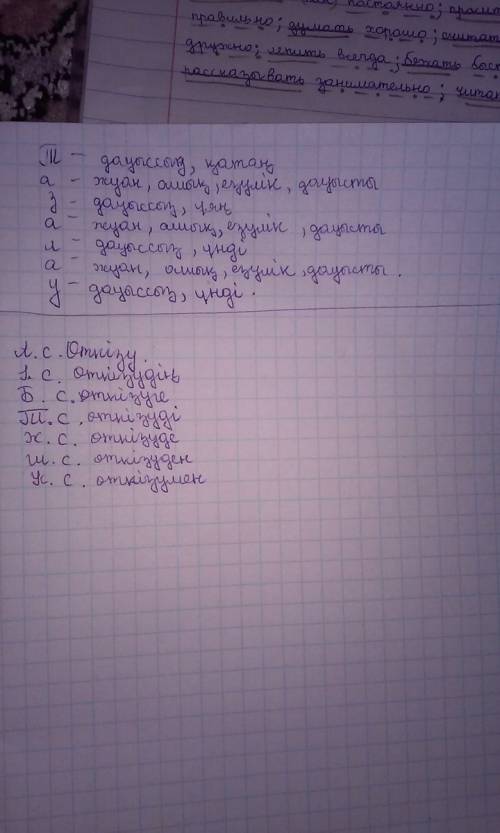 постоянно; просмо
правильно; думать хорошо; считат
дружно; лепить всегда; бежать быст
рассказывать занимательно; читан
Т - дауыссыз, қатаң
а - жуан, ашық, езулік, дауысты
з - дауыссыз, ұяң
а - жуан, ашық, езулік, дауысты
л - дауыссыз, үнді
а - жуан, ашық, езулік, дауысты.
у - дауыссыз, үнді.
А. с. Өткізу.
І. с. өткізудің
Б. с. өткізуге
Т. с. өткізуді
Ж. с. өткізуде
Ш. с. өткізуден
К. с. өткізумен